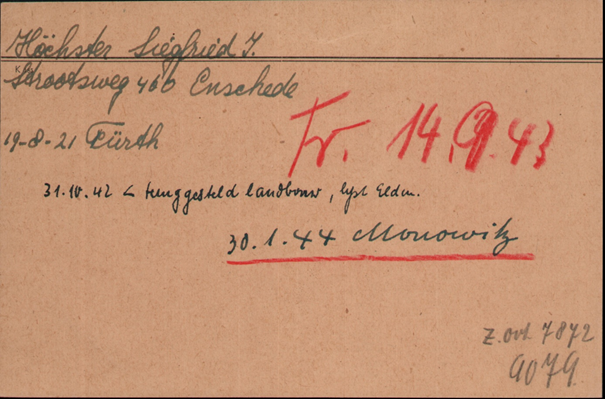 Höchster Siegfried I.
Strootsweg 466 Enschede
19-8-21 Fürth
Tr. 14.9.43
31.10.42 < teruggesteld landbouw, lyst Elden.
30.1.44 Monowitz
Z.out. 7872
9079